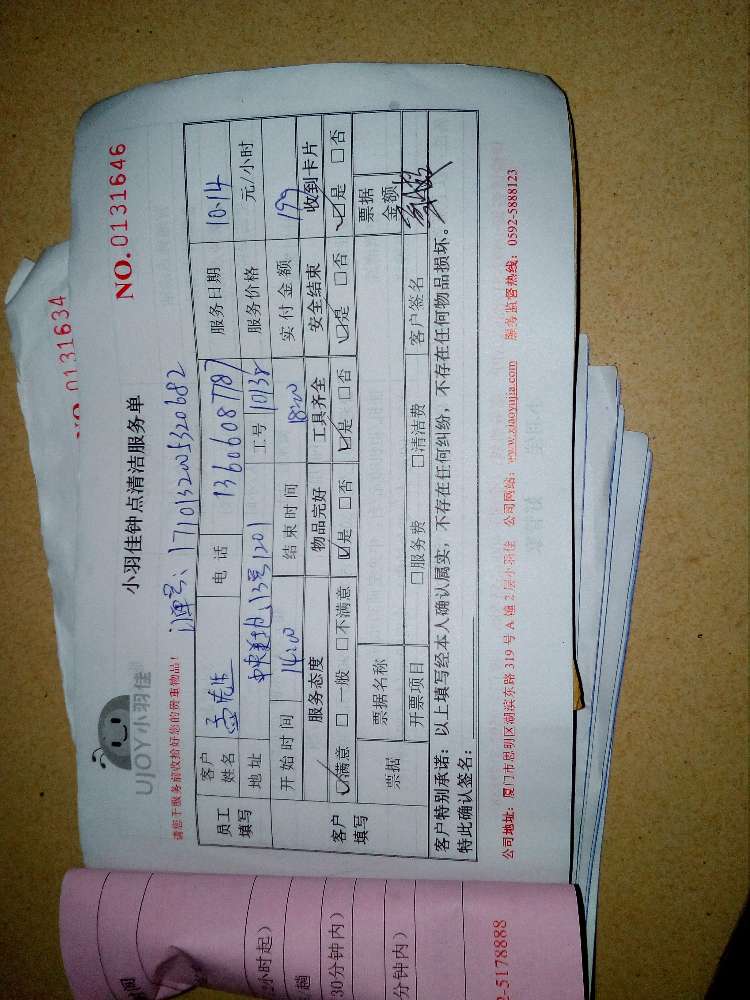 NO.0131634
小羽佳钟点清洁服务单
NO.0131646
UJOY小羽佳
请您于服务前收拾好您的贵重物品!
订单号:1710132005320682
员工填写
客户姓名
先生
电话
13606087787
服务日期
10.14
地址
13号1201
工号
服务价格
元/小时
开始时间
14:00
结束时间
18:00
实付金额
199
客户填写
服务态度
物品完好
工具齐全
安全结束
收到卡片
☑满意 □一般 □不满意
☑是 □否
☑是 □否
☑是 □否
☑是 □否
票据
票据名称
票据金额
开票项目
□服务费
□清洁费
客户签名
客户特别承诺:以上填写经本人确认属实,不存在任何纠纷,不存在任何物品损坏。
特此确认签名:
公司地址:厦门市思明区湖滨东路 319 号 A 幢 2 层小羽佳 公司网站:www.xiaoyujia.com 服务监督热线:0592-5888123
小时起)
趟
30分钟内)
分钟内)
2-5178888